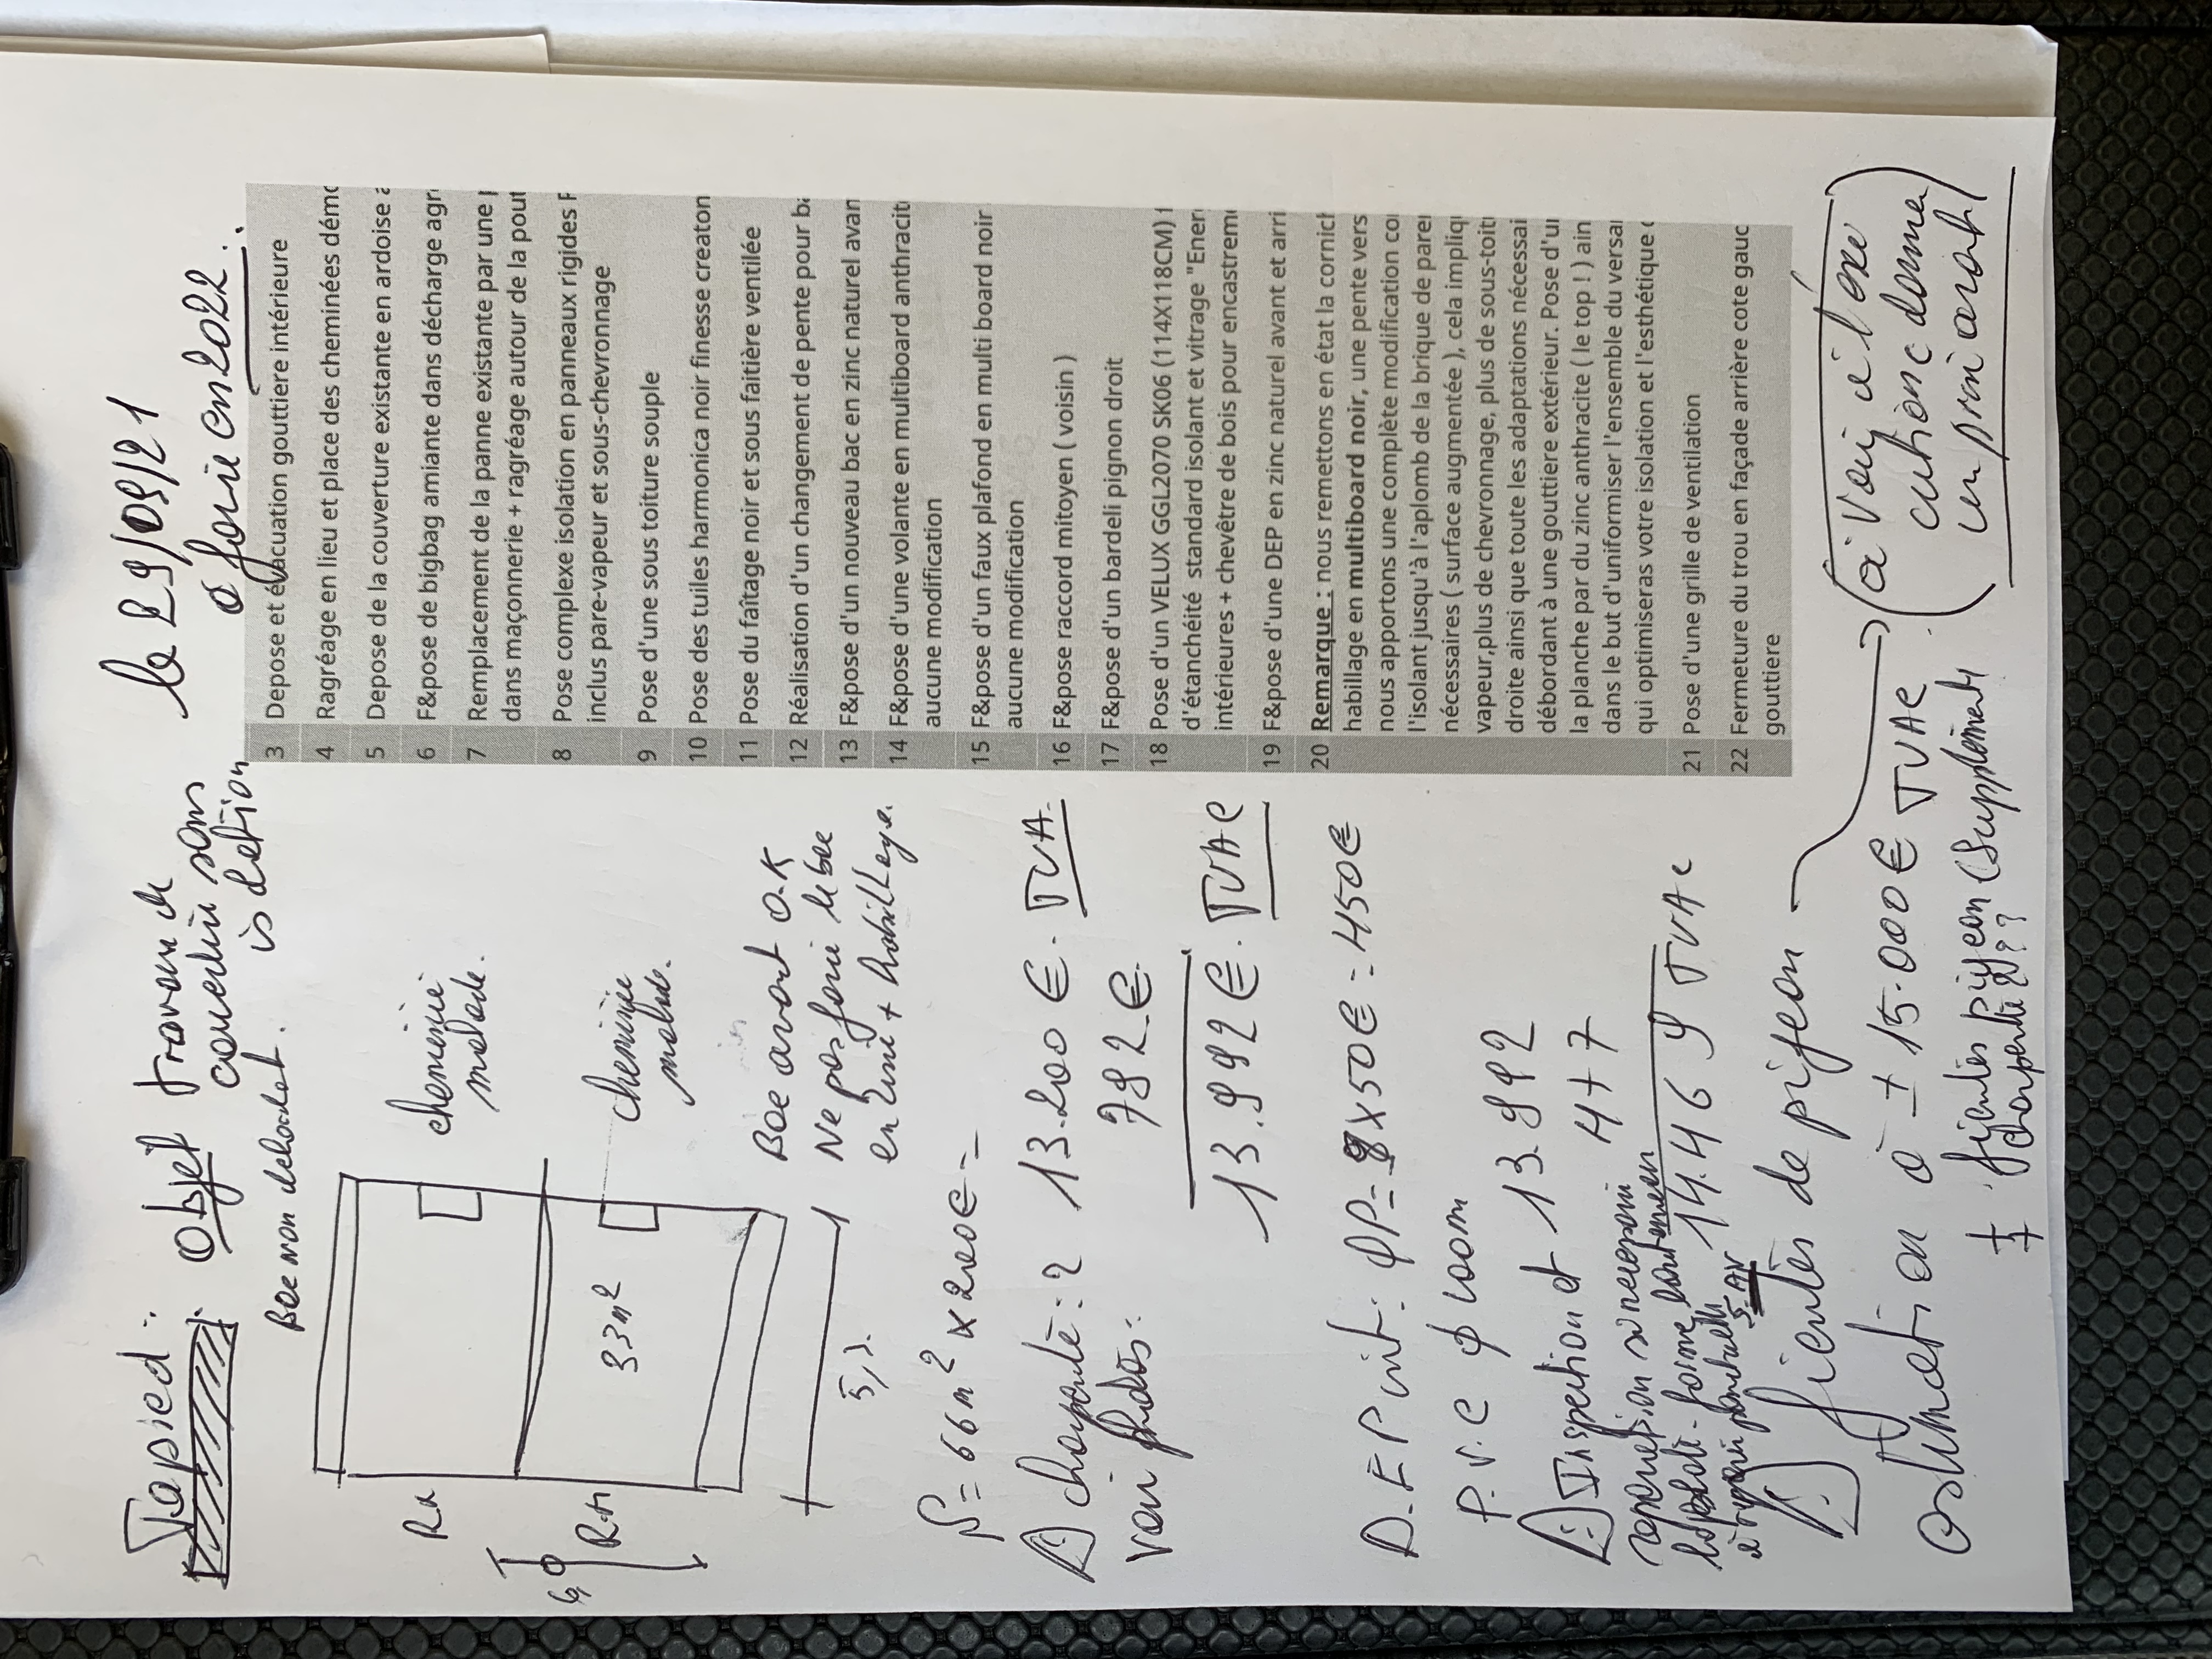 Tapied : Objet travaux de le 29/09/21
couverture sans à faire en 2022 :
isolation
Bac non debordet.
Rd
cheminée
malade.
6,0
R.M
33m²
cheminée
malade.
Bac avant O.K
Ne pas faire le bac
en zinc + habillage.
5,5
S = 66m² x 200€ =
charpente : ? 13.200 € . TVA.
voir photos : 792 €.
13.992 € . TVAC
D.E.P unit : x50€ = 450€
P.v.c ø 100m
Inspection et 13.992
réparation si nécessaire 477
14.469 TVAC
fientes de pigeon
(à voir à l'exé
cution donner
un prix avant)
estimation à ± 15.000 € TVAC
+ fientes pigeon (suppléments
+ charpente ???
3 Depose et évacuation gouttiere intérieure
4 Ragréage en lieu et place des cheminées démo
5 Depose de la couverture existante en ardoise a
6 F&pose de bigbag amiante dans décharge agr
7 Remplacement de la panne existante par une
dans maçonnerie + ragréage autour de la pout
8 Pose complexe isolation en panneaux rigides
inclus pare-vapeur et sous-chevronnage
9 Pose d'une sous toiture souple
10 Pose des tuiles harmonica noir finesse creaton
11 Pose du faîtage noir et sous faitière ventilée
12 Réalisation d'un changement de pente pour ba
13 F&pose d'un nouveau bac en zinc naturel avan
14 F&pose d'une volante en multiboard anthracit
aucune modification
15 F&pose d'un faux plafond en multi board noir
aucune modification
16 F&pose raccord mitoyen ( voisin )
17 F&pose d'un bardeli pignon droit
18 Pose d'un VELUX GGL2070 SK06 (114X118CM)
d'étanchéité standard isolant et vitrage "Ener
intérieures + chevêtre de bois pour encastrem
19 F&pose d'une DEP en zinc naturel avant et arri
20 Remarque : nous remettons en état la cornich
habillage en multiboard noir, une pente vers
nous apportons une complète modification co
l'isolant jusqu'à l'aplomb de la brique de pare
nécessaires ( surface augmentée ), cela impliq
vapeur,plus de chevronnage, plus de sous-toit
droite ainsi que toute les adaptations nécessai
débordant à une gouttiere extérieur. Pose d'u
la planche par du zinc anthracite ( le top ! ) ain
dans le but d'uniformiser l'ensemble du versa
qui optimiseras votre isolation et l'esthétique
21 Pose d'une grille de ventilation
22 Fermeture du trou en façade arrière cote gauc
gouttiere